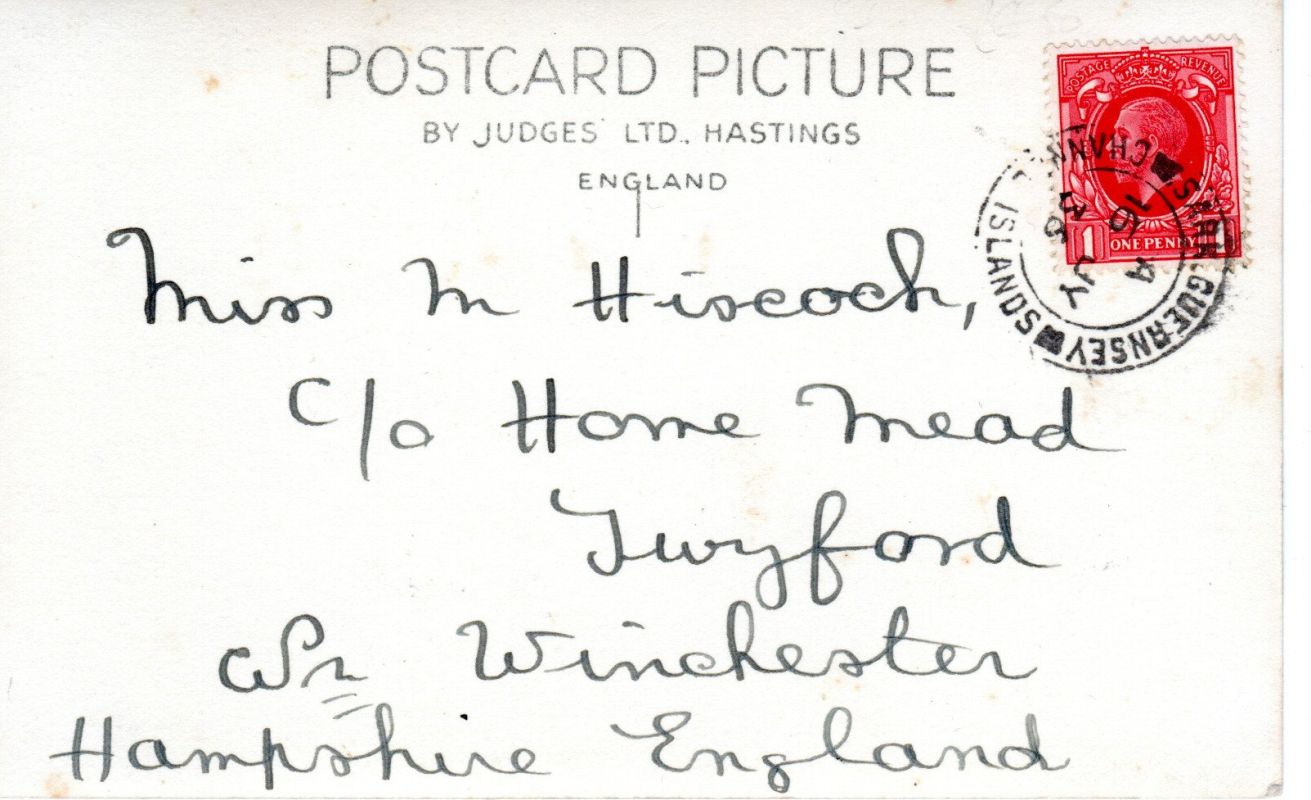 POSTCARD PICTURE
BY JUDGES' LTD., HASTINGS
ENGLAND
POSTAGE REVENUE
1 ONE PENNY 1
SARK. GUERNSEY
ISLANDS
10 A
JY
Miss M Hiscock,
c/o Home Mead
Twyford
Winchester
Hampshire England